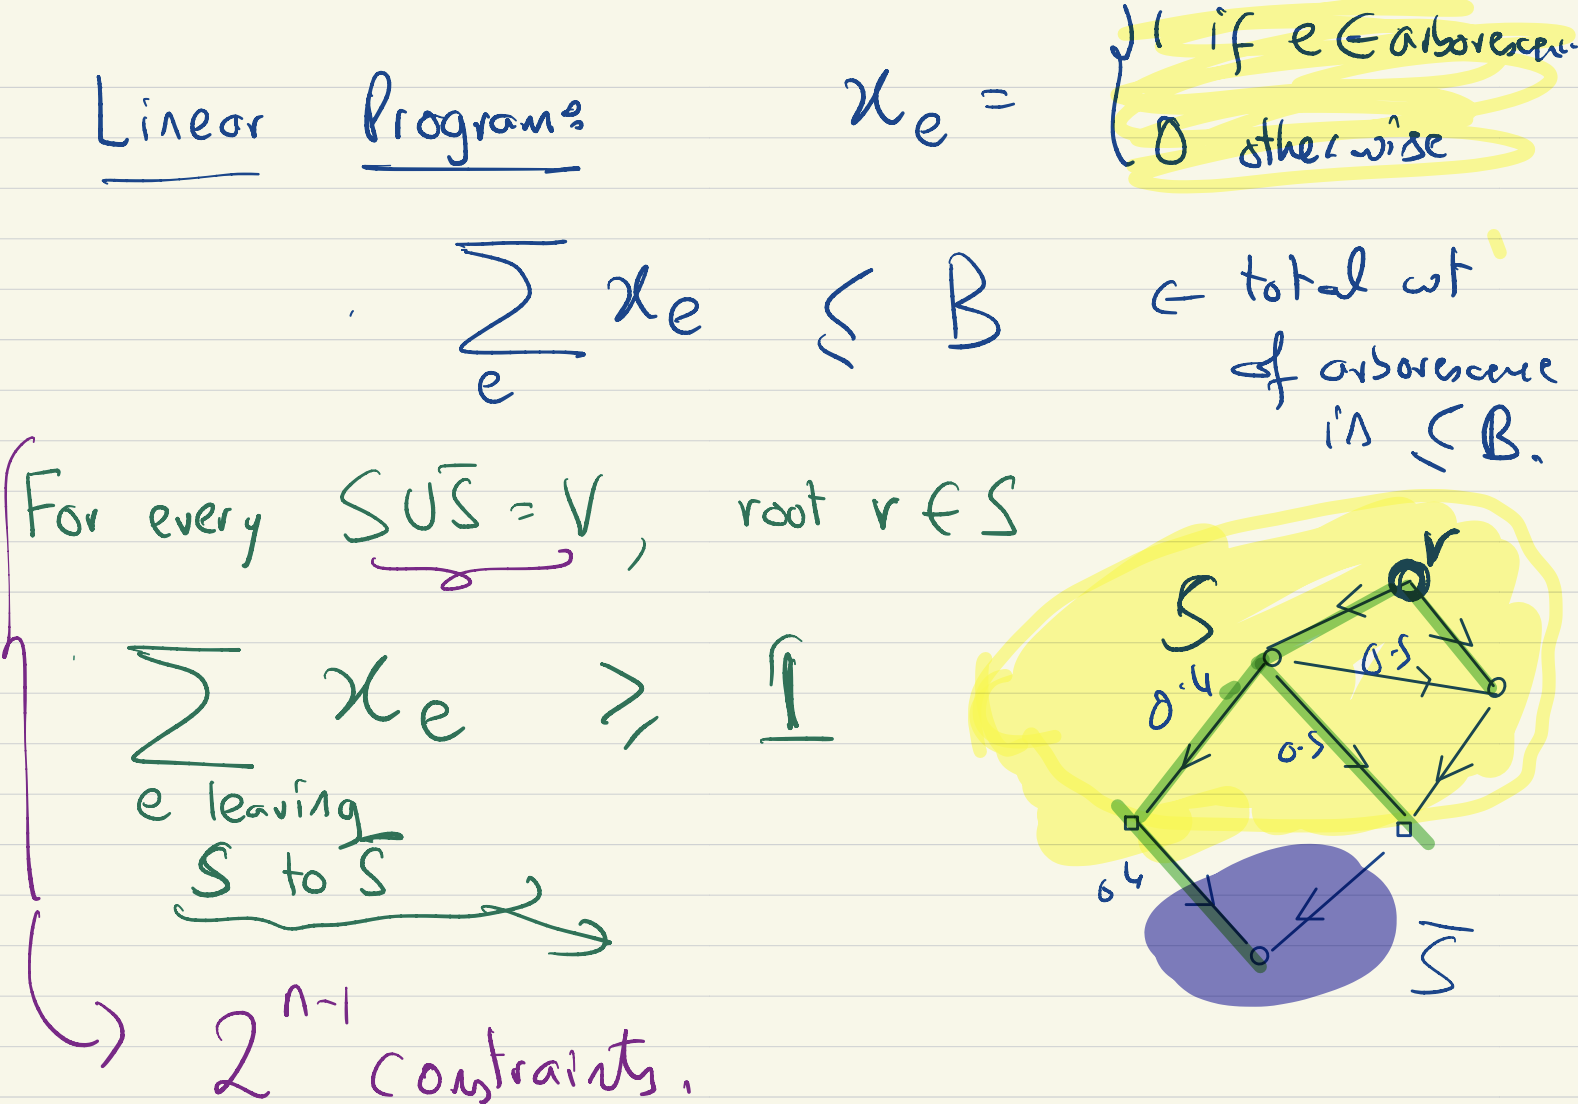 Linear Programs
x_e = { 1 if e ∈ arborescence
0 otherwise
∑_e x_e ≤ B ← total wt
of arborescence
is ≤ B.
For every S ∪ S̅ = V, root r ∈ S
∑ x_e ≥ 1
e leaving
S to S̅
2^{n-1} constraints.
r
S
0.5
0.4
0.5
0.4
S̅